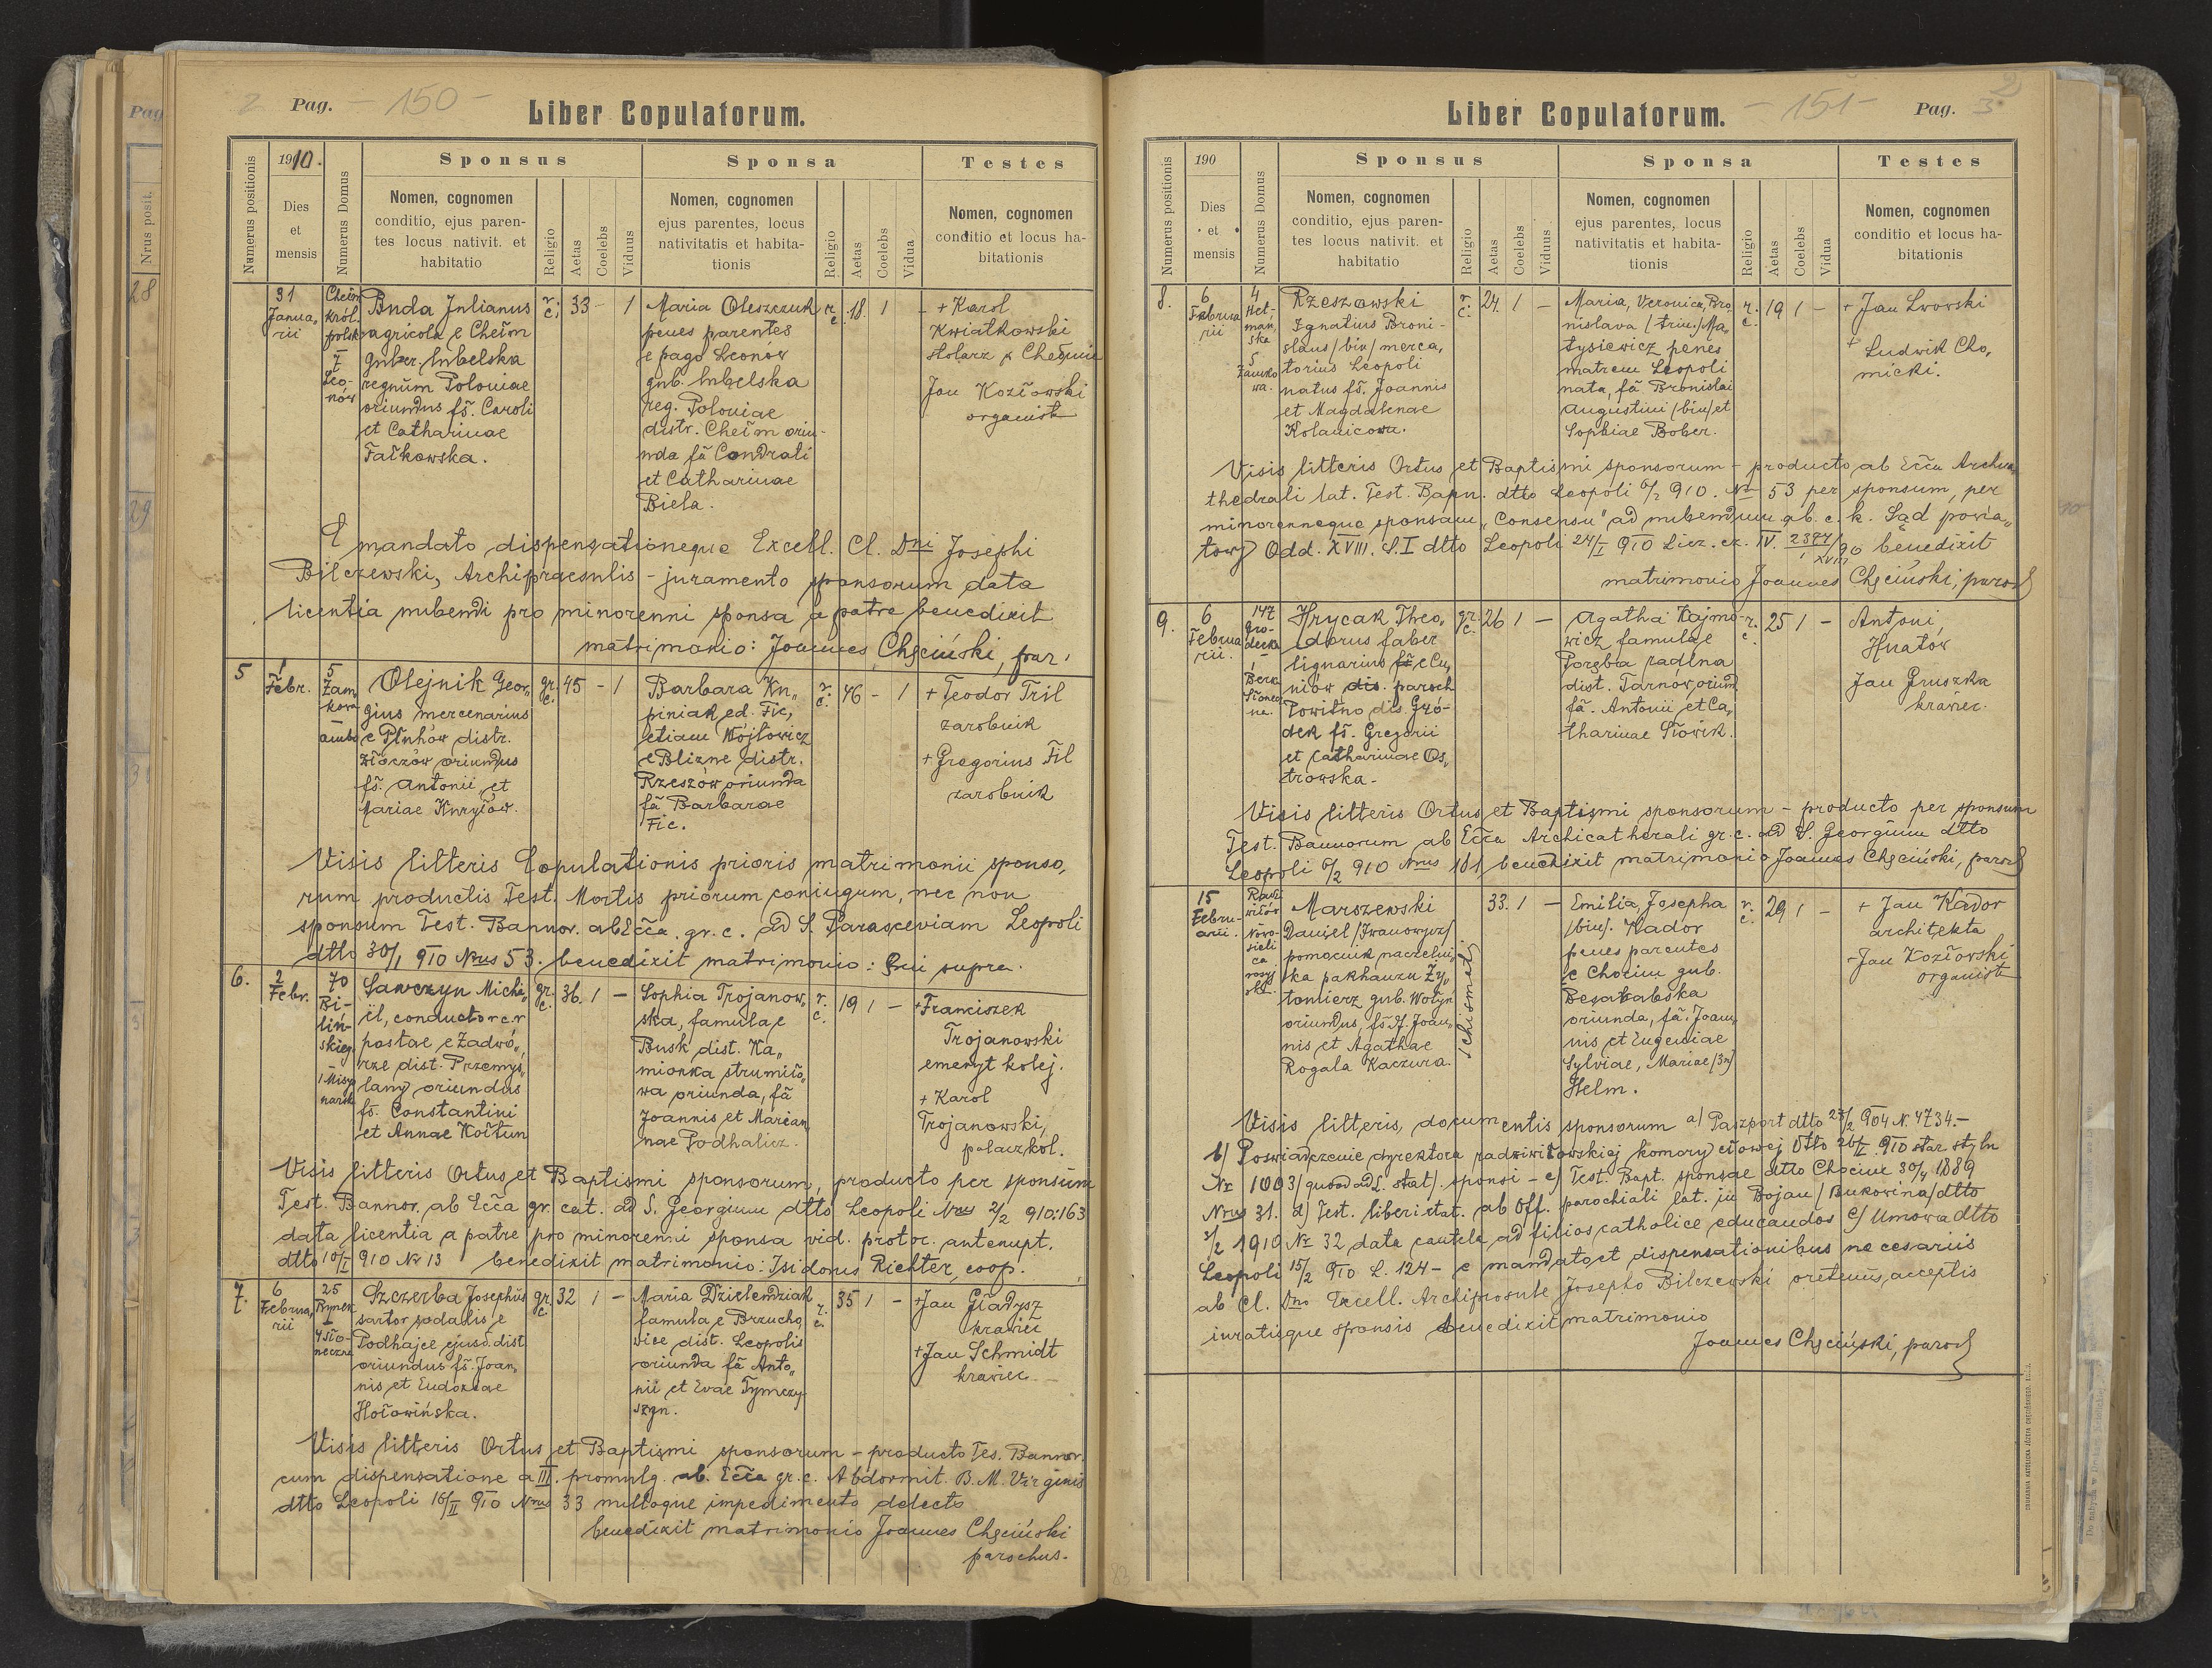 2 Pag. - 150 -
Liber Copulatorum.
Numerus positionis
1910.
Dies
et
mensis
Numerus Domus
Sponsus
Nomen, cognomen
conditio, ejus paren-
tes locus nativit. et
habitatio
Religio
Aetas
Coelebs
Viduus
Sponsa
Nomen, cognomen
ejus parentes, locus
nativitatis et habita-
tionis
Religio
Aetas
Coelebs
Vidua
Testes
Nomen, cognomen
conditio et locus ha-
bitationis
31
Janua„
rii
Chełm
król.
polsk
I
Leo-
nów
Buda Julianus
agricola e Chełm
guber. lubelska
regnum Poloniae
oriundus fs. Caroli
et Catharinae
Fałkowska.
r. c.
33 - 1
Maria Oleszczuk
penes parentes
e pago Leonów
gub. lubelska
reg. Poloniae
distr. Chełm oriu-
nda fa Condrati
et Catharinae
Biela.
r. c.
18. 1 -
+ Karol
Kwiatkowski
stolarz z Chełmie
Jan Kozłowski
organist
E mandato dispensationeque Excell. Cl. Dni Josephi
Bilczewski, Archipraesulis - juramento sponsorum data
licentia nubendi pro minorenni sponsa a patre benedixit
matrimonio: Joannes Chęciński, par.
5
1
Febr.
5
Zam„
kowa
ambo
Olejnik Geor„
gius mercenarius
e Płuhów distr.
Złoczów oriundus
fs. Antonii et
Mariae Kuryłów.
gr. c.
45 - 1
Barbara Ku„
piniak ed. Fic,
etiam Wójtowicz
e Blizne distr.
Rzeszów oriunda
fa Barbarae
Fic.
r. c.
46 - 1
+ Teodor Tril
zarobnik
+ Gregorius Fil
zarobnik
Visis litteris Copulationis prioris matrimonii sponso„
rum productis Test. Mortis priorum coniugum, nec non
sponsum Test. Bannor. ab Ecca. gr. c. ad S. Parasceviam Leopoli
dtto 30/I 910 Nrus 53. benedixit matrimonio: qui supra.
6.
2
Febr.
70
Bi„
liń-
skieg.
1 Misyo
narsk
Sawczyn Micha„
il, conductor c.r
postae e Zadwó„
rze dist. Przemyś„
lany oriundus
fs. Constantini
et Annae Kołtun
gr. c.
36. 1 -
Sophia Trojanow„
ska, famula e
Busk dist. Ka„
mionka strumiło„
wa oriunda, fa
Joannis et Marian„
nae Podhalicz.
r. c.
19 1 -
+ Franciszek
Trojanowski
emeryt kolej.
+ Karol
Trojanowski,
palacz kol.
Visis litteris Ortus et Baptismi sponsorum, producto per sponsum
Test. Bannor. ab Ecca gr. cat. ad S. Georgium dtto Leopoli Nrus 2/2 910:163
data licentia a patre pro minorenni sponsa vid. protoc. antenupt.
dtto 10/I 910 Nr 13 benedixit matrimonio: Isidorus Richter, coop.
7.
6
Februa„
rii
25
Rynek
I
4 Sło-
neczna
Szczerba Josephus
sartor sodalis e
Podhajce ejusd. dist
oriundus fs. Joan„
nis et Eudoxiae
Hołowińska.
gr. c.
32 1 -
Maria Dzielendziak
famula e Brzucho„
wice dist. Leopolis
oriunda fa Anto„
nii et Evae Tymczy„
szyn.
r. c.
35 1 -
+ Jan Gładysz
krawiec
+ Jan Schmidt
krawiec -
Visis litteris Ortus et Baptismi sponsorum - producto Tes. Bannor.
cum dispensatione a III. promulg. ab. Ecca gr. c. Abdormit. B. M. Virginis
dtto Leopoli 16/II 910 Nrus 33 nulloque impedimento detecto
benedixit matrimonio Joannes Chęciński
parochus.
Liber Copulatorum. - 151 - Pag. 3
2
Numerus positionis
190
Dies
et
mensis
Numerus Domus
Sponsus
Nomen, cognomen
conditio, ejus paren-
tes locus nativit. et
habitatio
Religio
Aetas
Coelebs
Viduus
Sponsa
Nomen, cognomen
ejus parentes, locus
nativitatis et habita-
tionis
Religio
Aetas
Coelebs
Vidua
Testes
Nomen, cognomen
conditio et locus ha-
bitationis
8.
6
Februa
rii
4
Het„
mań„
ska
5
Zamko
wa.
Rzeszowski
Ignatius Broni-
slaus /bin/ merca„
torius Leopoli
natus fs. Joannis
et Magdalenae
Kolanicowa.
r. c.
24. 1 -
Maria, Veronica, Bro„
nislava /trin./ Ma„
tysiewicz penes
matrem Leopoli
nata, fa Bronislai
Augustini /bin/ et
Sophiae Bober.
r. c.
19 1 -
+ Jan Lwowski
+ Ludwik Cho„
micki.
Visis litteris Ortus et Baptismi sponsorum - producto ab Ecca Archica„
thedrali lat. Test. Bapn. dtto Leopoli 6/2 910. Nr 53 per sponsum, per
minorennegue sponsam „Consensu" ad nubendum ab. c. k. Sąd powia„
towy Odd. XVIII. S.I dtto Leopoli 24/I 910 Licz. cz. IV. 2387/90 XVIII benedixit
matrimonio Joannes Chęciński, paroch
9.
6
Februa
rii.
147
Gro-
decka
1
Berna
Słonecz
na.
Hrycak Theo„
dorus faber
lignarius fs e Cu„
niów dis. paroch
Powitno dis. Gró-
dek fs. Gregorii
et Catharinae Os„
trowska -
gr. c.
26 1 -
Agatha Kajmo-
wicz famula e
Poręba radlna
dist. Tarnów, oriund
fa. Antonii et Ca„
tharinae Słowik.
r. c.
25 1 -
Antoni
Hnatów
Jan Gruszka
krawiec.
Visis litteris Ortus et Baptismi sponsorum - producto per sponsum
Test. Bannorum ab Ecca Archicatherali gr. c. ad S. Georgium dtto
Leopoli 6/2 910 Nrus 181 benedixit matrimonio Joannes Chęciński, paroch
15
Febru-
arii.
Radzi
wiłów
Nowo-
sieli
ca
rosyj
ska
Marszewski
Daniel /Iwanowycz/
pomocnik naczelni„
ka pakhauzu Ży„
tomierz gub. Wołyń
oriundus, fs. Joan„
nis et Agathae
Rogala Kaczura.
schismat.
33. 1 -
Emilia, Josepha
/bin/. Kador
penes parentes
e Chocim gub.
Besarabska
oriunda, fa. Joan„
nis et Eugeniae
Sylviae, Mariae /3n/
Helm.
r. c.
29 1 -
+ Jan Kador
architekta
- Jan Kozłowski
organist
Visis litteris, documentis sponsorum a) Paszport dtto 23/2 904 N. 4734.-
b) Poswiadczenie dyrektora radziwiłowskiej komory cłowej dtto 26/I. 910 star stylu
Nr 1003 /quoad ad L. stat/. sponsi - c) Test. Bapt. sponsae dtto Chocim 30/4 1889
Nrus 31. d) Test. liberi stat. ab Off. parochiali lat. in Bojan /Bukowina/ dtto
3/2 1910 Nr 32, data cautela ad filios catholice educandos e) Umowa dtto
Leopoli 15/2 910 L. 124 - e mandato et dispensationibus necesariis
ab Cl. Dno Excell. Archiprosule Josepho Bilczewski oretenus, acceptis
iuratisque sponsis benedixit matrimonio
Joannes Chęciński, paroch